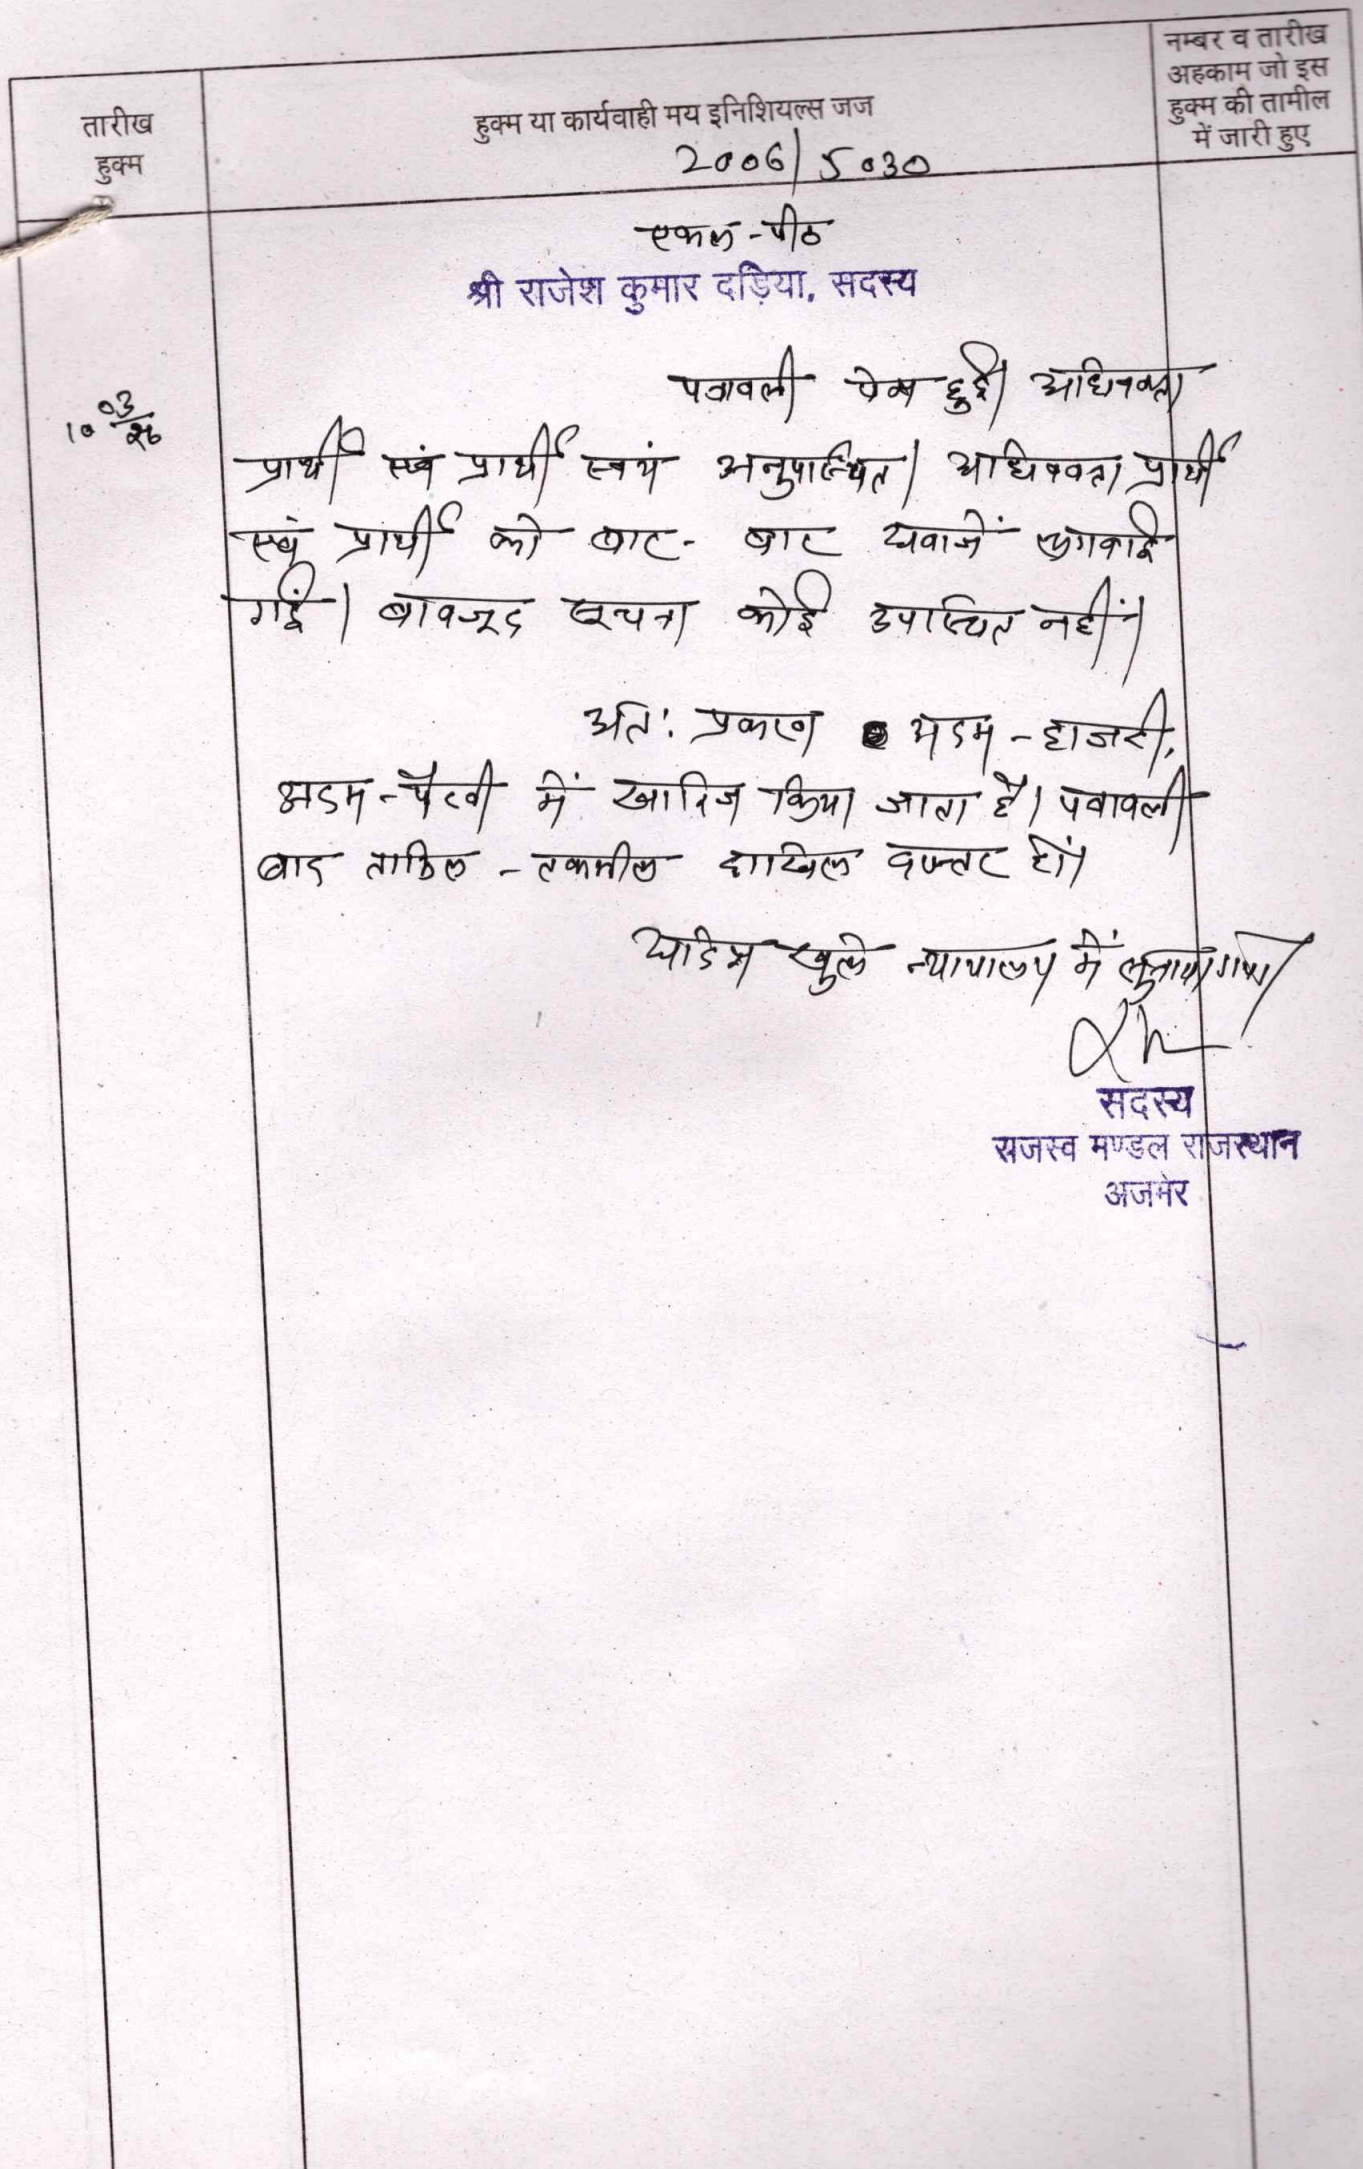 तारीख
हुक्म
हुक्म या कार्यवाही मय इनिशियल्स जज
नम्बर व तारीख
अहकाम जो इस
हुक्म की तामील
में जारी हुए
2006/5030
एकल-पीठ
श्री राजेश कुमार दड़िया, सदस्य
10 03/26
पत्रावली पेश हुई। अधिवक्ता
प्रार्थी एवं प्रार्थी स्वयं अनुपस्थित। अधिवक्ता प्रार्थी
एवं प्रार्थी को बार-बार आवाजें लगवाई
गई। बावजूद सूचना कोई उपस्थित नहीं।
अतः प्रकरण अदम-हाजरी,
अदम-पैरवी में खारिज किया जाता है। पत्रावली
बाद तामिल-तकमील दाखिल दफ्तर हों।
आदेश खुले न्यायालय में सुनाया गया।
सदस्य
राजस्व मण्डल राजस्थान
अजमेर